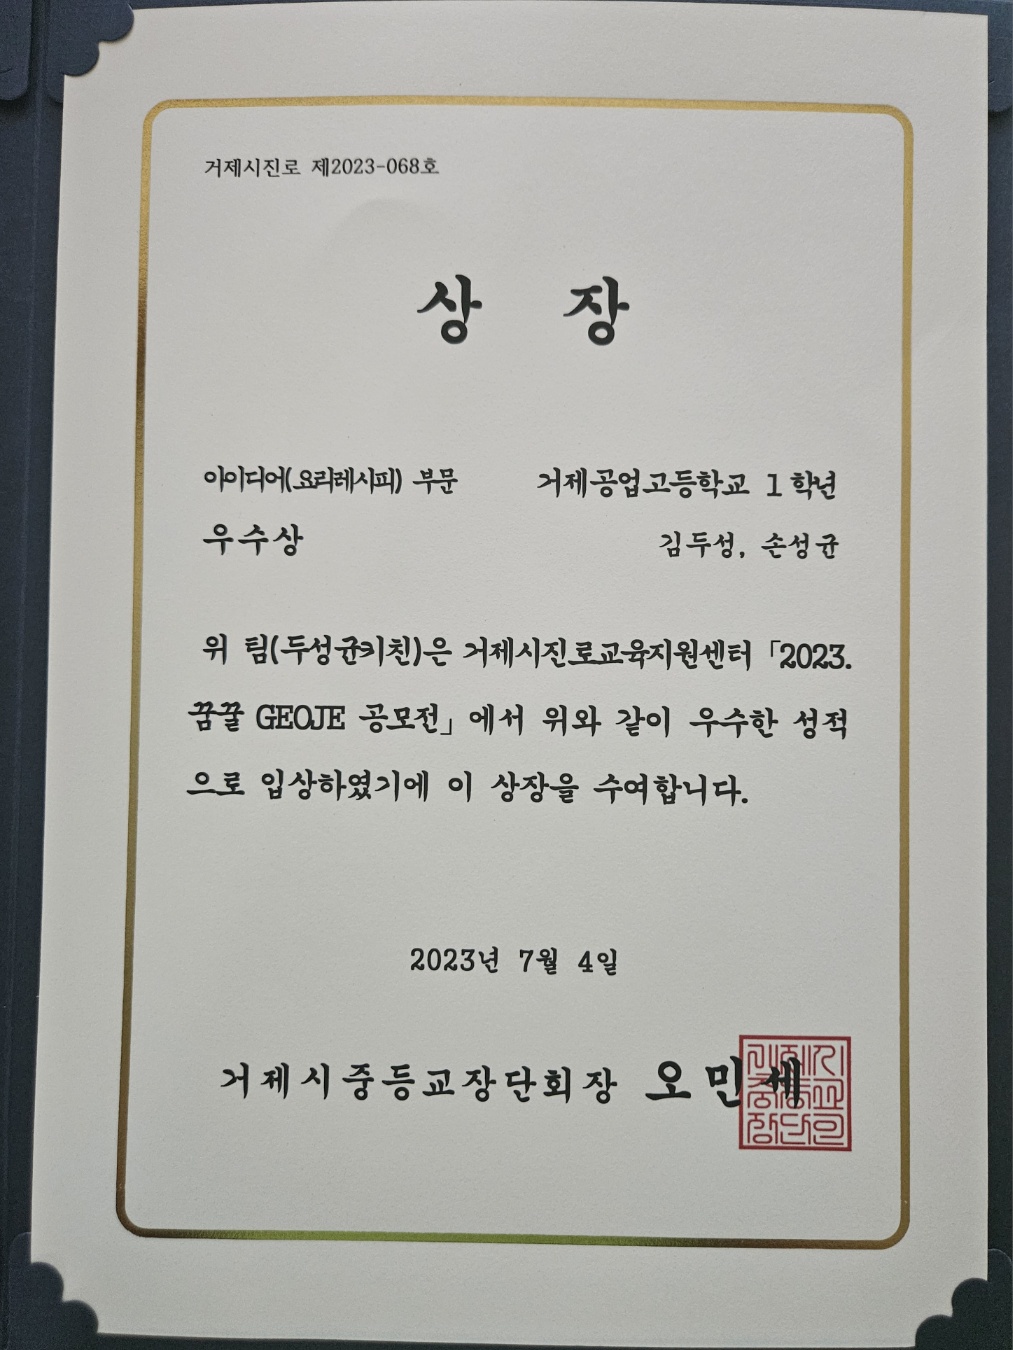 거제시진로 제2023-068호
상 장
아이디어(요리레시피) 부문 거제공업고등학교 1학년
우수상 김두성, 손성균
위 팀(두성균키친)은 거제시진로교육지원센터 「2023.
꿈꿀 GEOJE 공모전」에서 위와 같이 우수한 성적
으로 입상하였기에 이 상장을 수여합니다.
2023년 7월 4일
거제시중등교장단회장 오민세
거제시
중등교
장단회